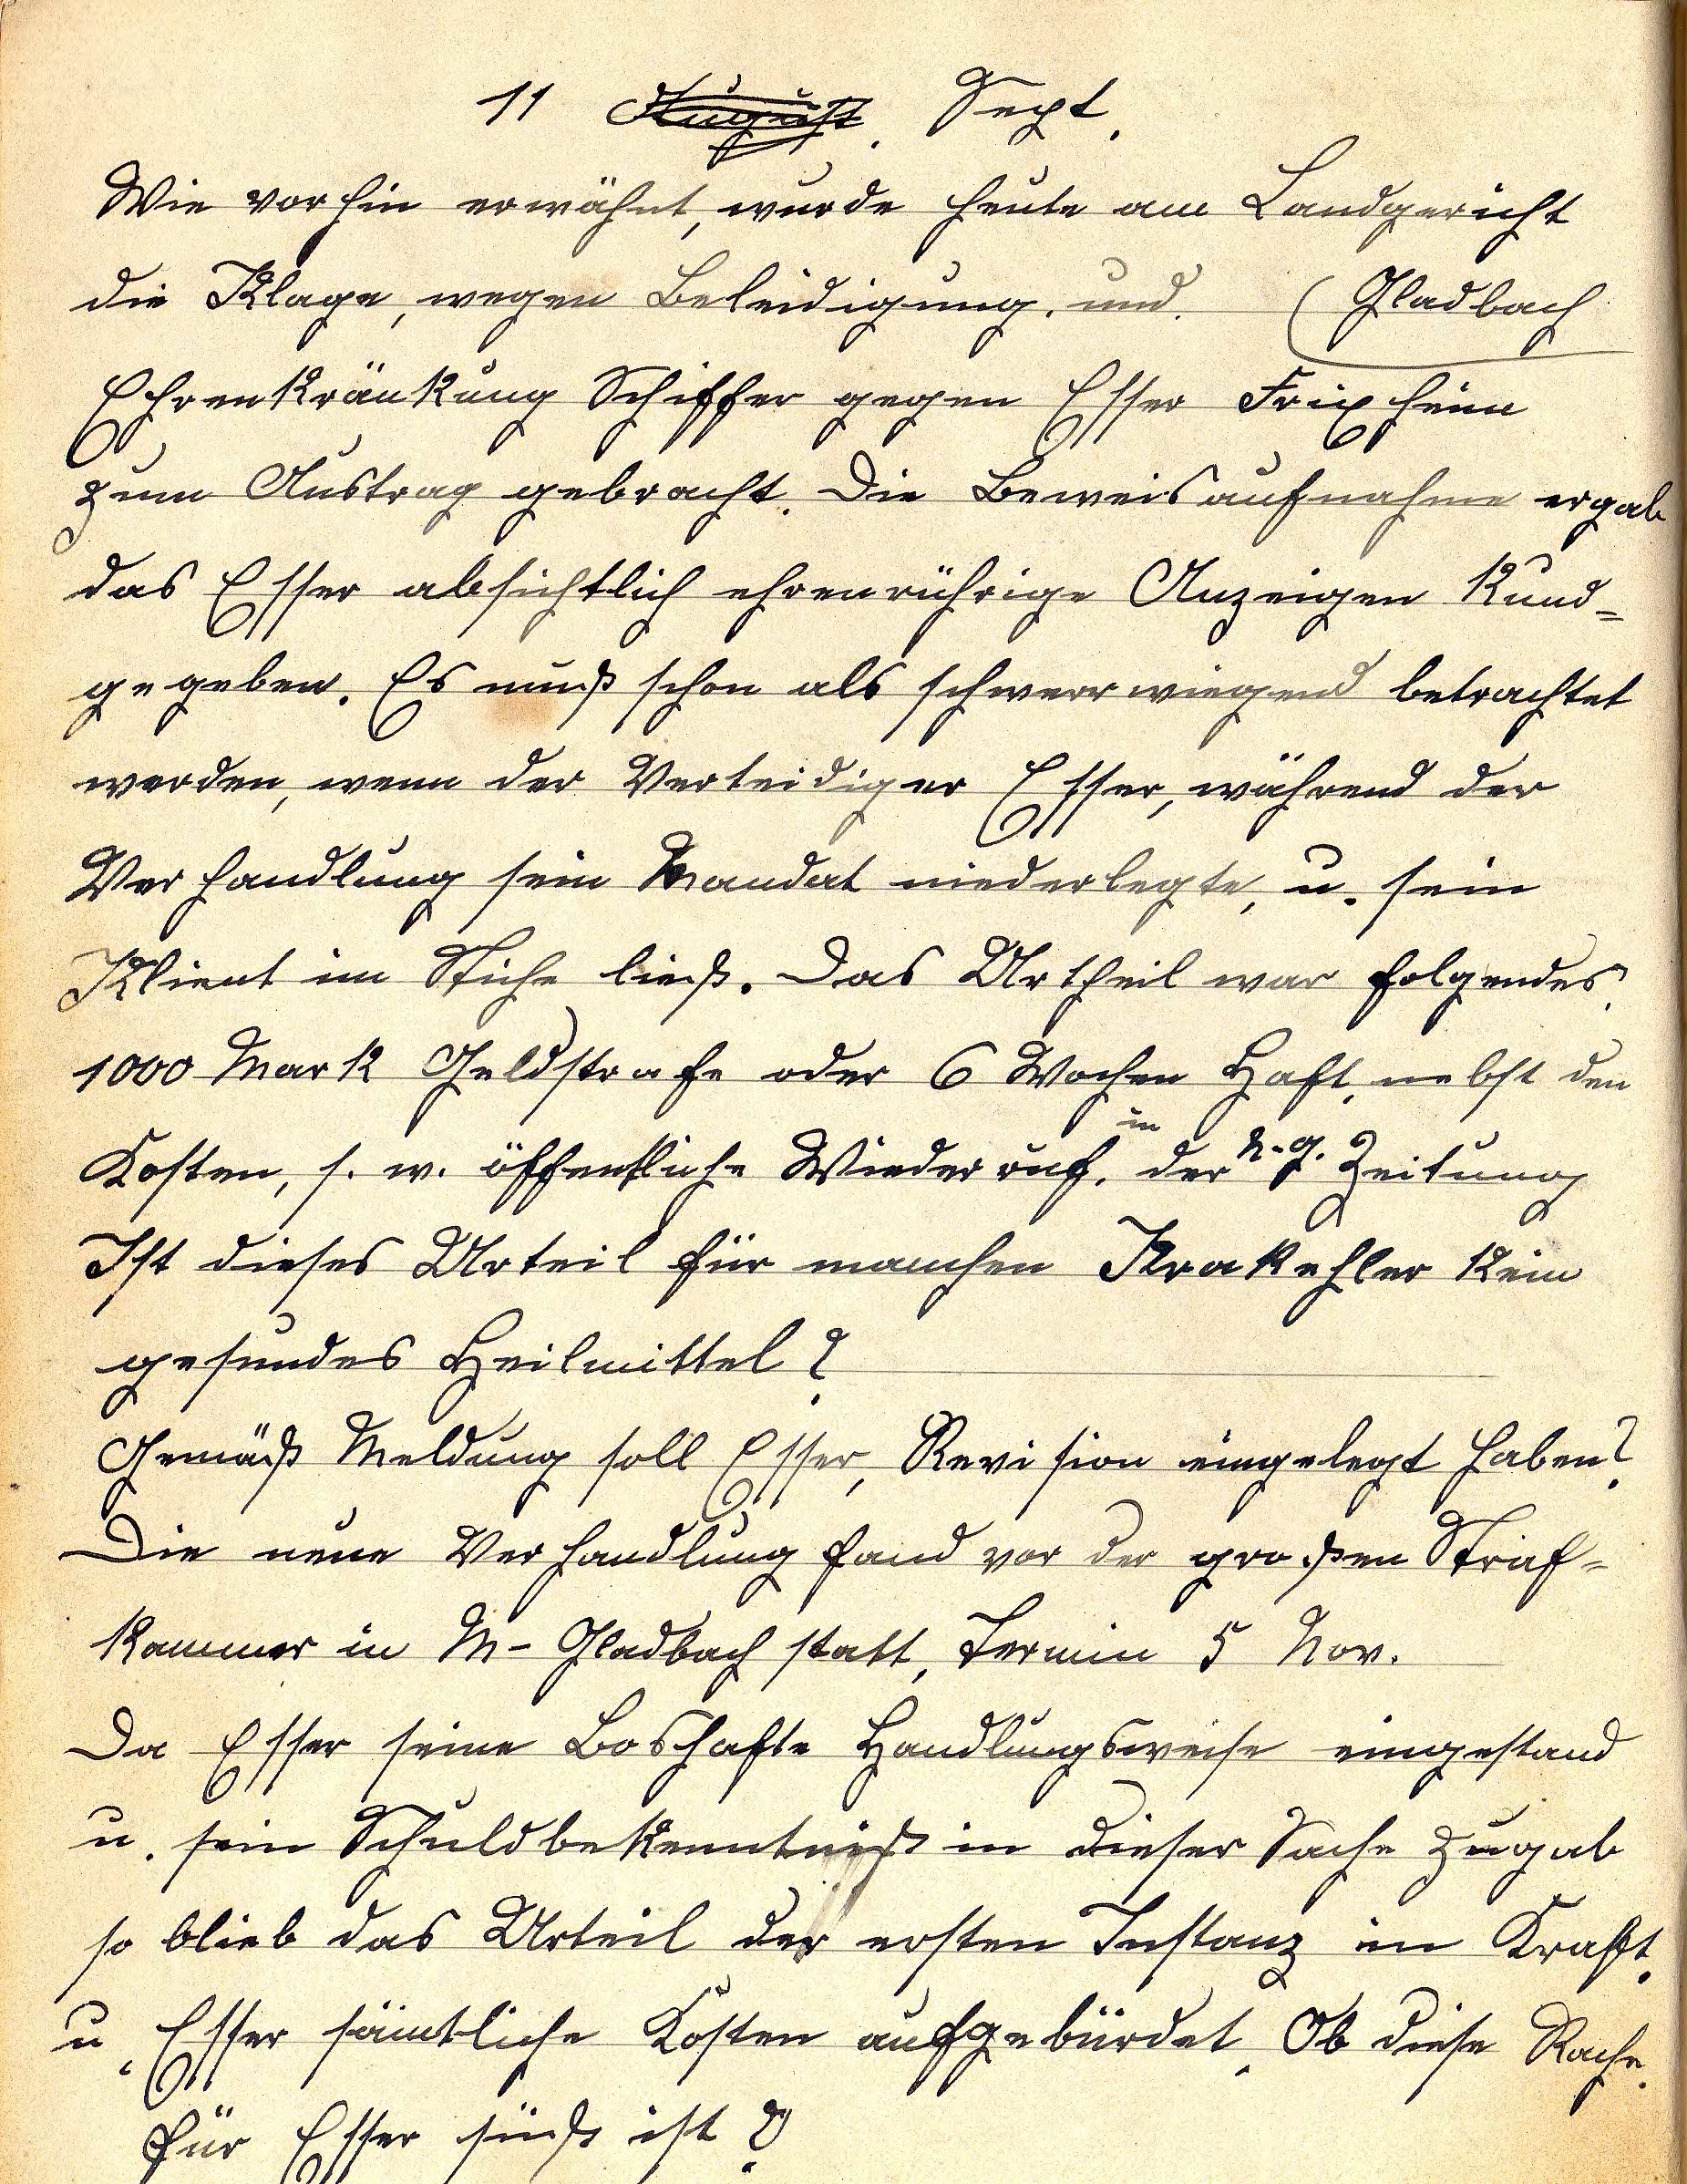 11 August. Sept.
Wie vorhin erwähnt, wurde heute am Landgericht
die Klage, wegen Beleidigung. und. (Gladbach
Ehrenkränkung Schiffer gegen Esser Frixheim
zum Austrag gebracht. Die Beweisaufnahme ergab
das Esser absichtlich ehrenrührige Anzeigen kund-
gegeben. Es muß schon als schwerrwiegend betrachtet
werden, wenn der Verteidiger Esser, während der
Verhandlung sein Mandat niederlegte, u. sein
Klient im Stiche ließ. Das Urtheil war folgendes.
1000 Mark Geldstrafe oder 6 Wochen Haft, nebst den
Kosten, s. w. öffentliche Wiederruf. in der N.-G. Zeitung
Ist dieses Urteil für manchen Krakehler kein
gesundes Heilmittel?
Gemäß Meldung soll Esser, Revision eingelegt haben?
Die neue Verhandlung fand vor der großen Straf-
kammer in M-Gladbach statt, Termin 5 Nov.
Da Esser seine Boshafte Handlungsweise eingestand
u. sein Schuldbekenntniß in dieser Sache zugab
so blieb das Urteil der ersten Instanz in Kraft.
u. Esser sämtliche Kosten aufgebürdet. Ob diese Rache.
für Esser süß ist?